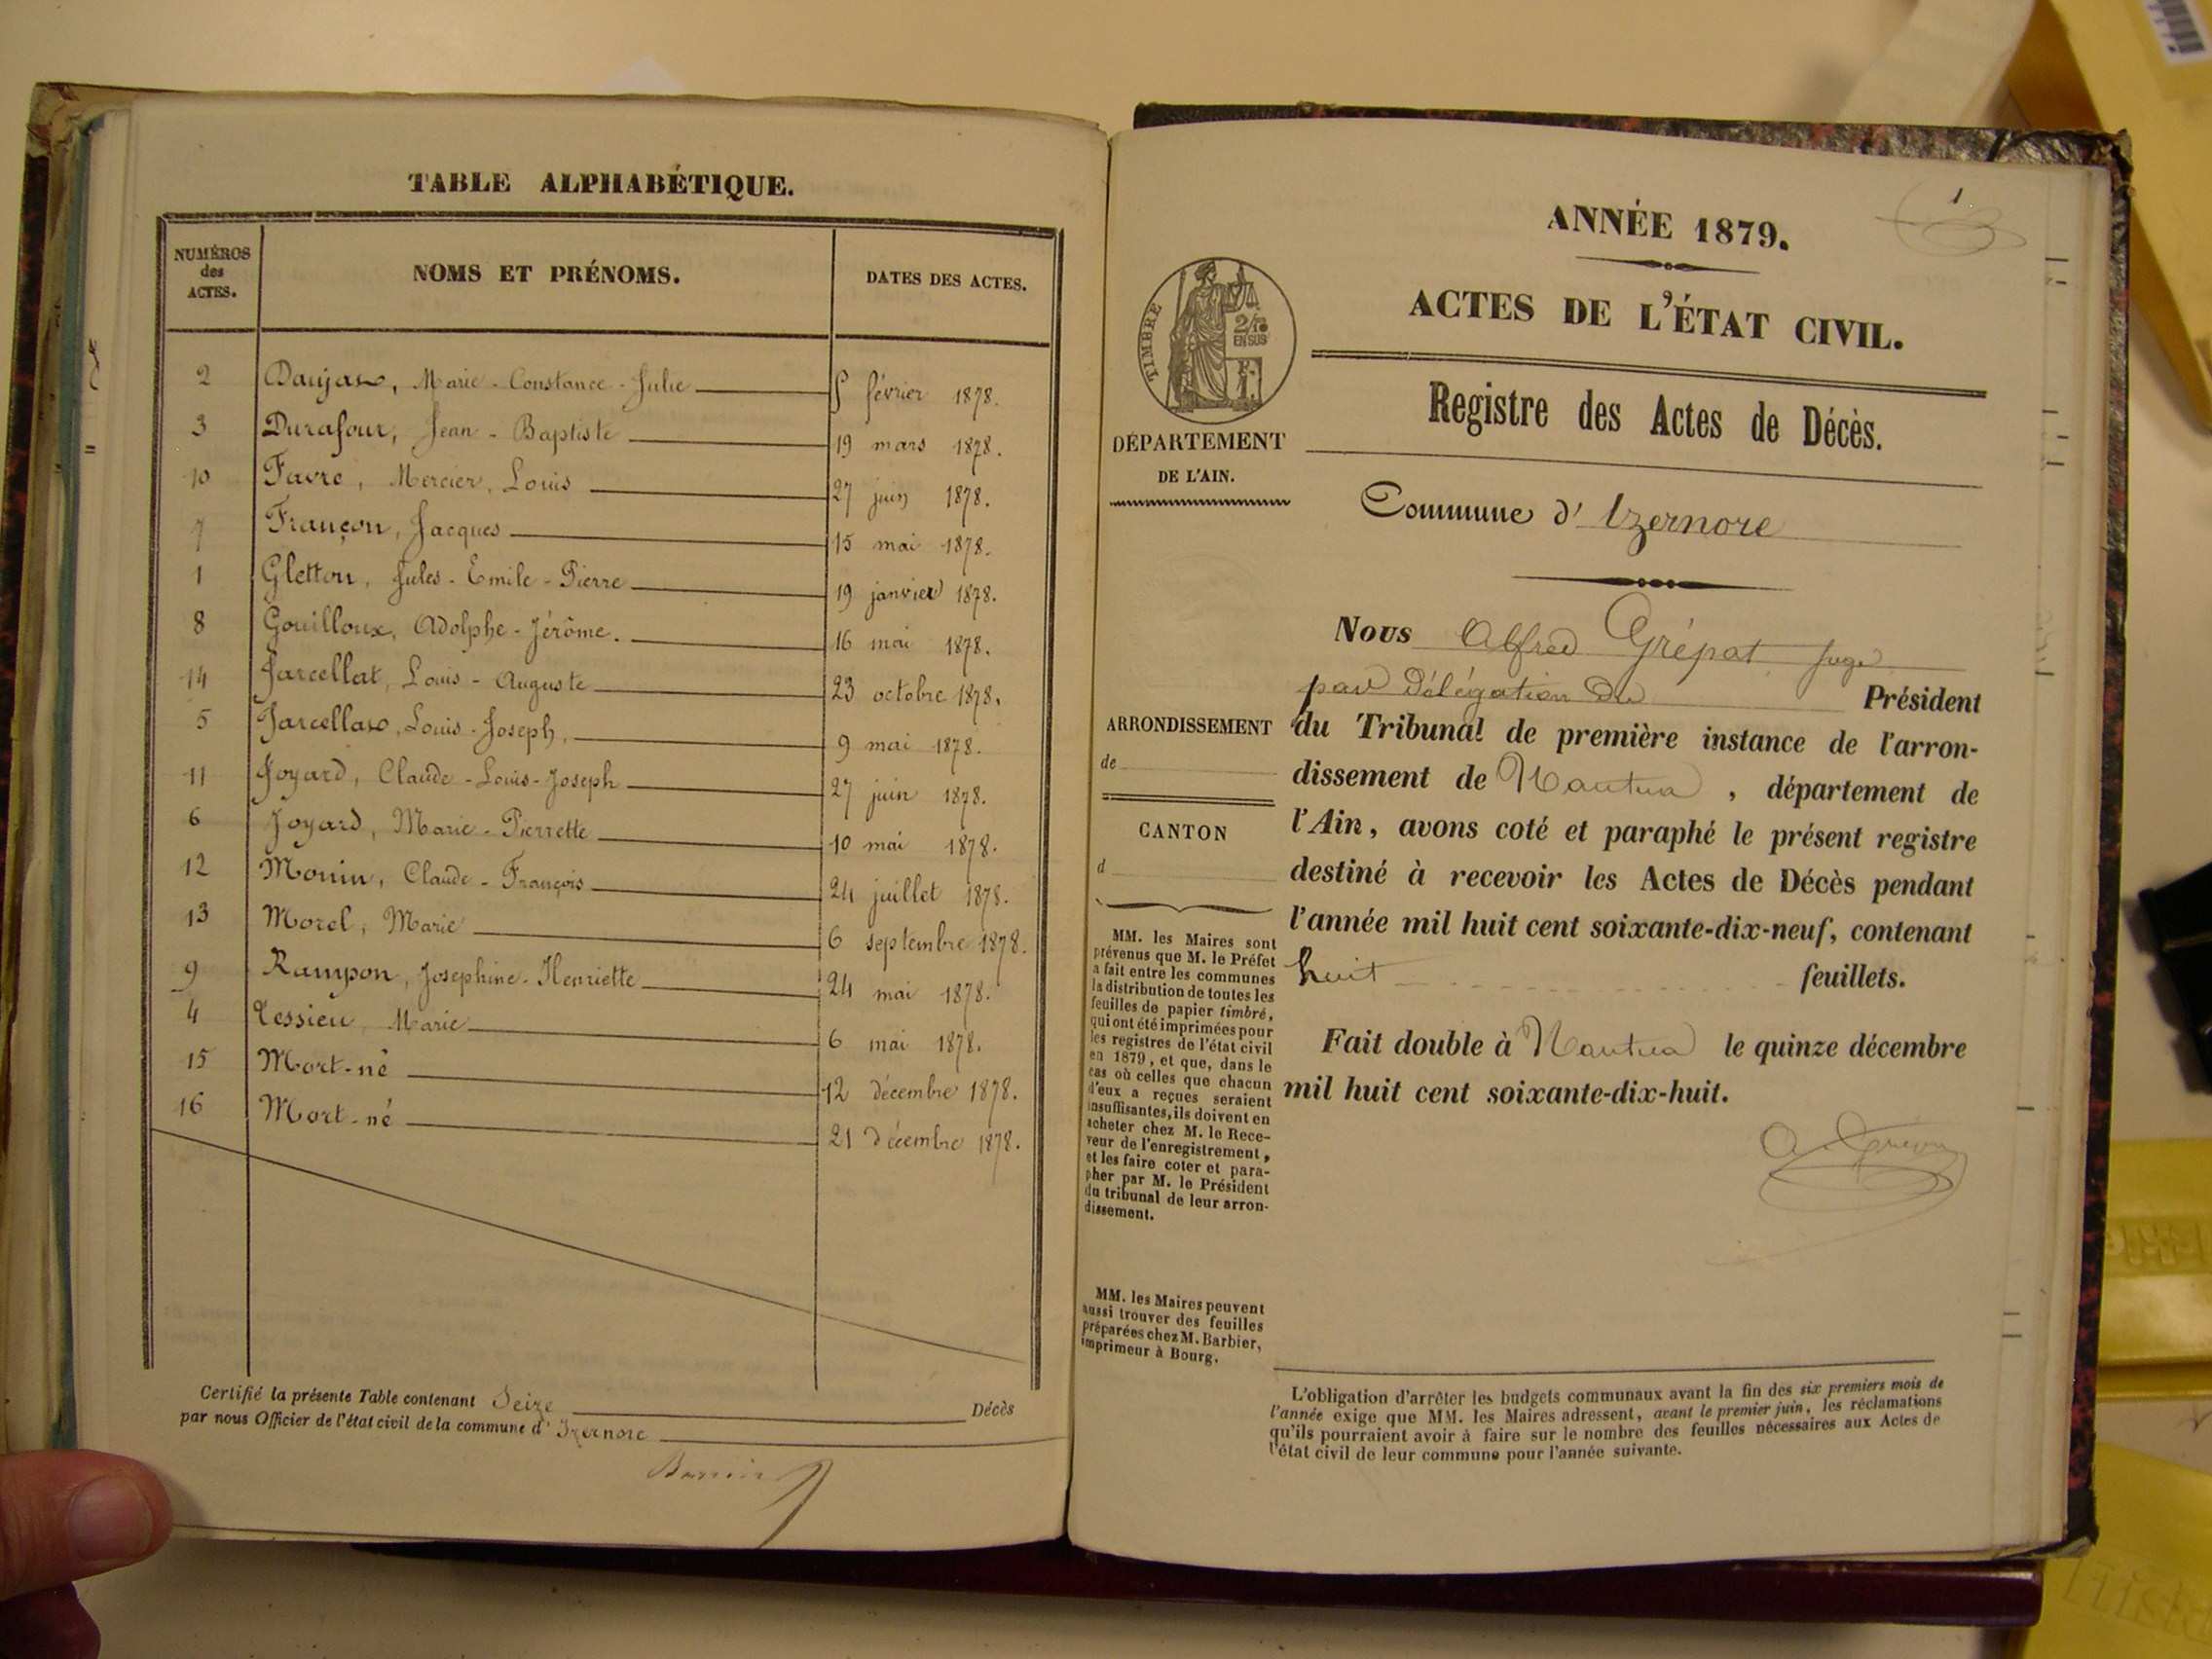 TABLE ALPHABÉTIQUE.
NUMÉROS
des
ACTES.
NOMS ET PRÉNOMS.
DATES DES ACTES.
2 Daujat, Marie-Constance-Julie février 1878.
3 Durafour, Jean-Baptiste 19 mars 1878.
10 Favre, Mercier, Louis 27 juin 1878.
7 Françon, Jacques 15 mai 1878.
1 Gletton, Jules-Emile-Pierre 19 janvier 1878.
8 Gouilloux, Adolphe-Jérôme. 16 mai 1878.
14 Jarcellat, Louis-Auguste 23 octobre 1878.
5 Jarcellat, Louis-Joseph, 9 mai 1878.
11 Joyard, Claude-Louis-Joseph 27 juin 1878.
6 Joyard, Marie-Pierrette 10 mai 1878.
12 Monin, Claude-François 24 juillet 1878.
13 Morel, Marie 6 septembre 1878.
9 Rampon, Josephine-Henriette 24 mai 1878.
4 Tessieu, Marie 6 mai 1878.
15 Mort-né 12 décembre 1878.
16 Mort-né 21 décembre 1878.
Certifié la présente Table contenant Seize Décès
par nous Officier de l'état civil de la commune d' Izernore
1
ANNÉE 1879.
ACTES DE L'ÉTAT CIVIL.
TIMBRE
2/10
EN SUS
Registre des Actes de Décès.
DÉPARTEMENT
DE L'AIN.
Commune d' Izernore
Nous Alfred Grépat Juge
par Délégation du Président
du Tribunal de première instance de l'arron-
dissement de Nantua, département de
l'Ain, avons coté et paraphé le présent registre
destiné à recevoir les Actes de Décès pendant
l'année mil huit cent soixante-dix-neuf, contenant
huit feuillets.
Fait double à Nantua le quinze décembre
mil huit cent soixante-dix-huit.
ARRONDISSEMENT
de
CANTON
d
MM. les Maires sont
prévenus que M. le Préfet
a fait entre les communes
la distribution de toutes les
feuilles de papier timbré,
qui ont été imprimées pour
les registres de l'état civil
en 1879, et que, dans le
cas où celles que chacun
d'eux a reçues seraient
insuffisantes, ils doivent en
acheter chez M. le Rece-
veur de l'enregistrement,
et les faire coter et para-
pher par M. le Président
du tribunal de leur arron-
dissement.
MM. les Maires peuvent
aussi trouver des feuilles
préparées chez M. Barbier,
imprimeur à Bourg.
L'obligation d'arrêter les budgets communaux avant la fin des six premiers mois de
l'année exige que MM. les Maires adressent, avant le premier juin, les réclamations
qu'ils pourraient avoir à faire sur le nombre des feuilles nécessaires aux Actes de
l'état civil de leur commune pour l'année suivante.